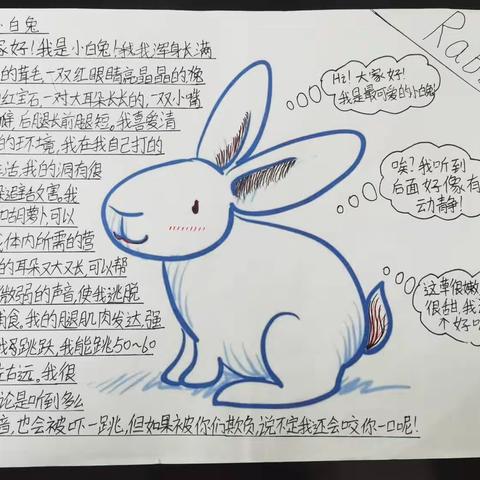 小白兔
家好！我是小白兔！我浑身长满
的茸毛，一双红眼睛亮晶晶的像
红宝石，一对大耳朵长长的，一双小嘴
后腿长前腿短。我喜爱清
的环境，我在我自己打的
生活，我的洞有很
躲避敌害。我
和胡萝卜，可以
我体内所需的营
的耳朵又大又长，可以帮
微弱的声音，使我逃脱
捕食。我的腿肌肉发达，强
跳跃，我能跳50~60
左右远。我很
论是听到多么
音，也会被吓一跳，但如果被你们欺负，说不定我还会咬你一口呢！
Rab
Hi！大家好！
我是最可爱的小白兔
唉？我听到
后面好像有
动静！
这草很嫩
很甜，我
个好吃